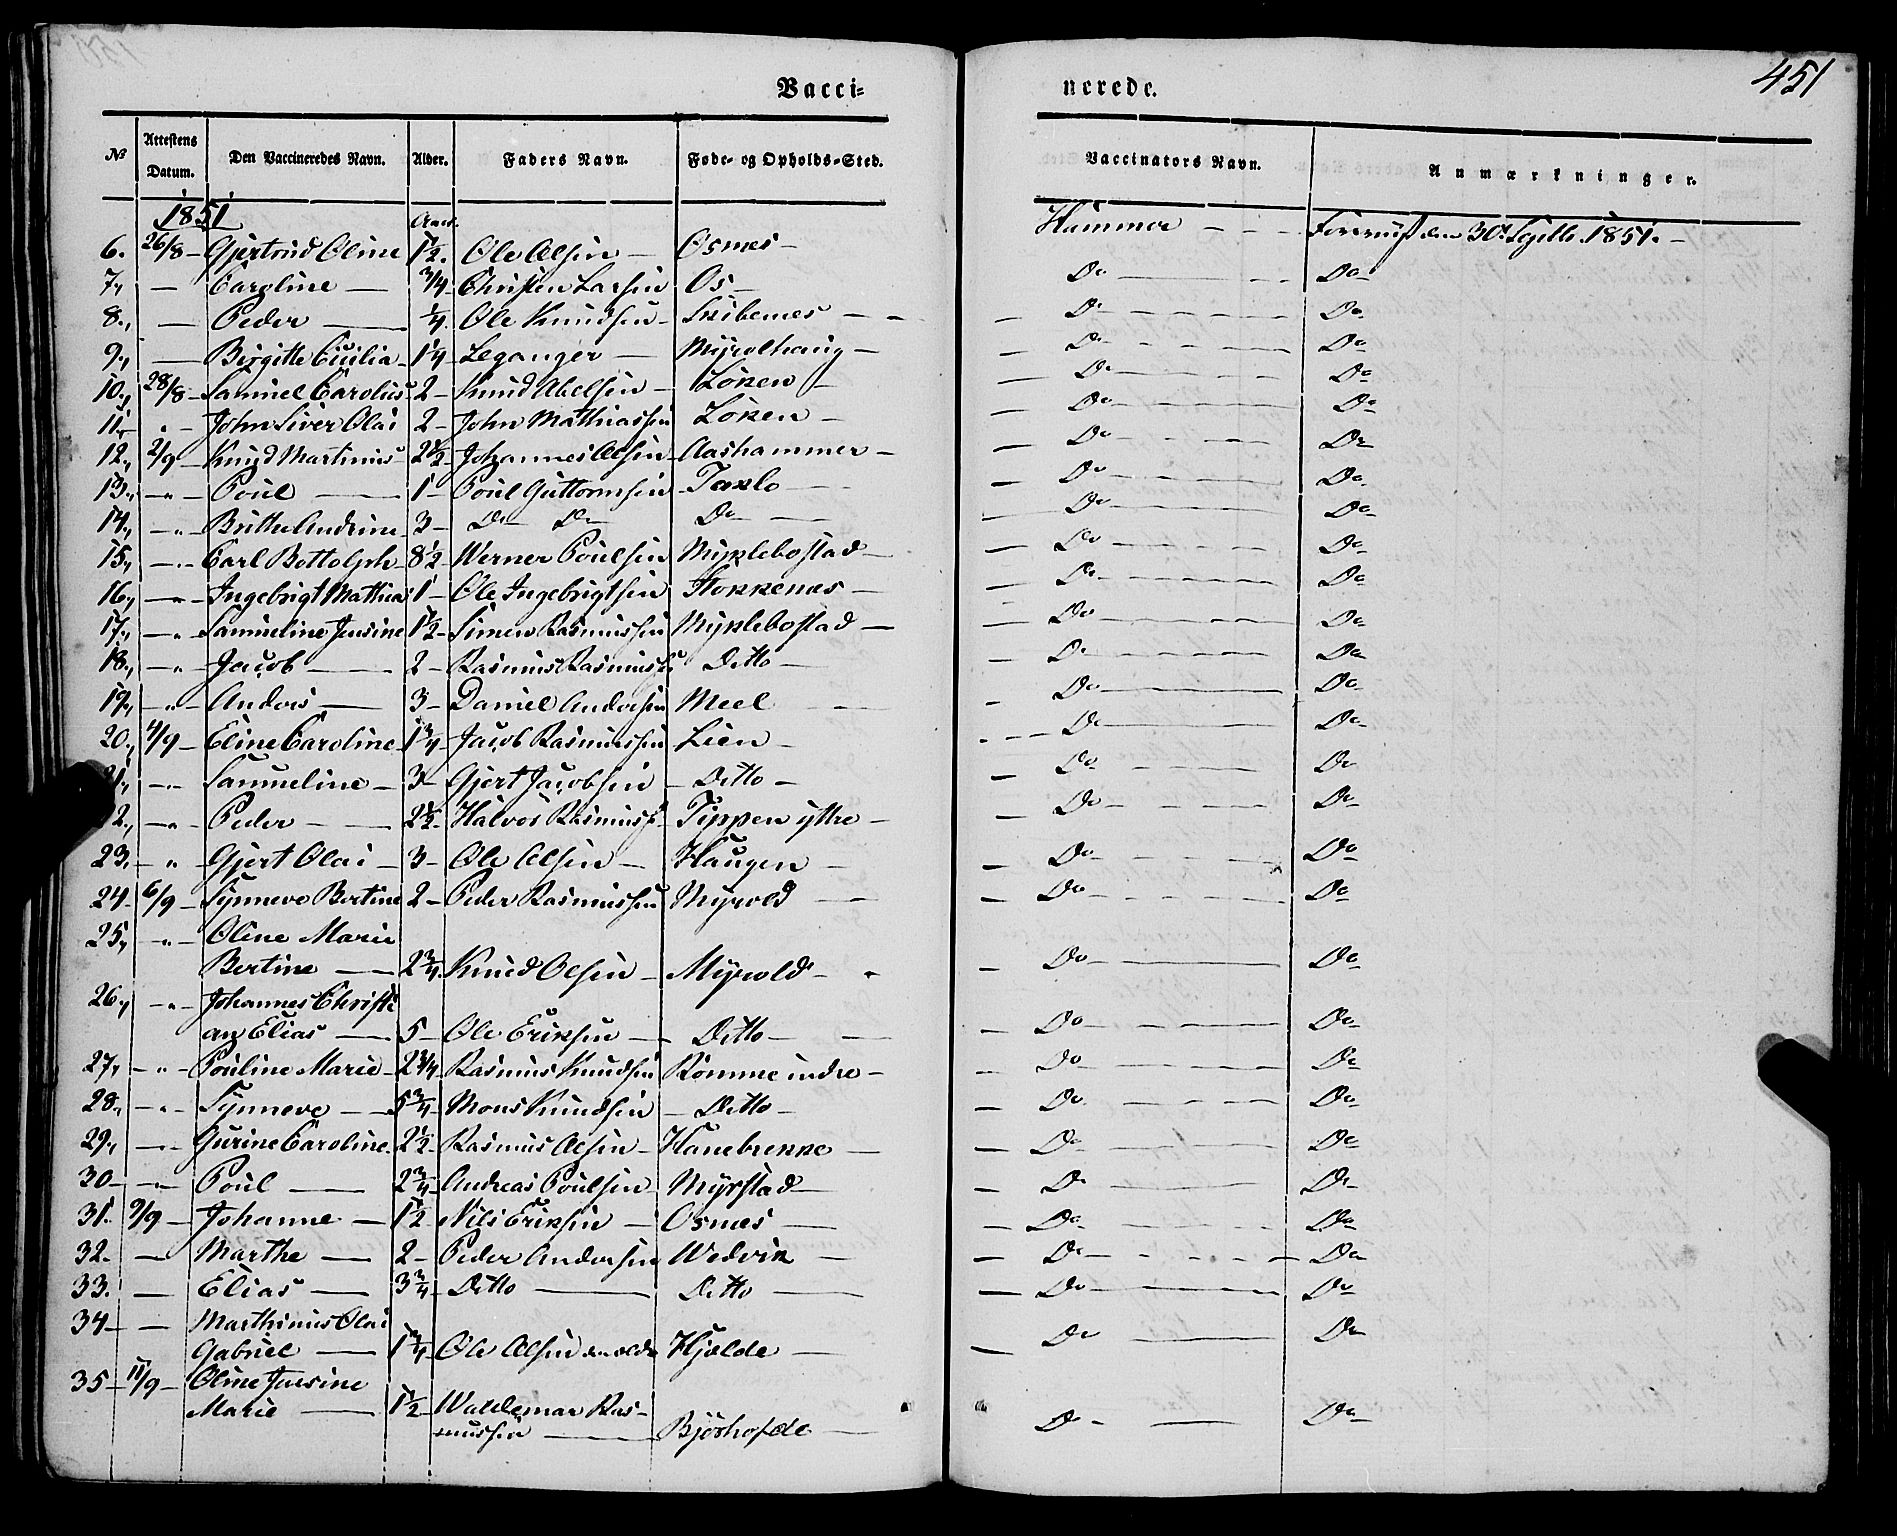 Vacci= nerede. 451
№ Attestens Datum. Den Vaccineredes Navn. Alder. Faders Navn. Føde- og Opholds-Sted. Vaccinators Navn. Anmærkninger.
1851 Aar.
6. 26/8 - Gjertrud Oline 1½. Ole Olsen - Osnes - Hammer - - - den 30te Septb. 1851. -
7, - Caroline - ¾ Christen Larsen Os - Do - Do
8., - Peder - ¼. Ole Knudsen - Skibenes - - Do - Do
9., - Birgitte Cicilia - 1¼ Leganger - Myrolhaug - Do - Do
10., 28/8 - Samuel Carolus 2 - Knud Abelsen - Löken - Do - Do
11, " - John Siver Olai 2 - John Mathiassen Löken - Do - Do
12., 2/9 - Knud Martinus 2½ - Johannes Olsen - Aashammer - Do - Do
13., - " - Poul - 1 - Poul Guttormsen - Taklo - Do - Do
14., - " - Brithe Andrine 3 - Do Do Do - Do - Do
15., - " - Carl Bottolph - 8½ - Werner Poulsen Myklebostad - Do - Do
16., - " - Ingebrigt Mathias 1 - Ole Ingebrigtsen Stokkenæs - Do - Do
17., - " - Samueline Jensine 1½ - Simen Rasmussen Myklebostad - Do - Do
18., - " - Jacob - 2 - Rasmus Rasmuss: Ditto - Do - Do
19., - " - Anders - 3 - Daniel Andersen Meel - Do - Do
20., 4/9 - Eline Caroline - 1¾ - Jacob Rasmussen Lien - Do - Do
21., - " - Samueline - 3 - Gjert Jacobsen - Ditto - Do - Do
2., - " - Peder - 2½ - Halvor Rasmuss: Tippen yttre - Do - Do
23. - " - Gjert Olai - 3 - Ole Olsen - Haugen - Do - Do
24 - 6/9 - Synneve Bertine 2 - Peder Rasmussen Myrold - Do - Do
25., - " - Oline Marie
Bertine - 2¾. Knud Olsen - Myrold - Do - Do
26., - " - Johannes Christi
an Elias - 5 - Ole Eriksen - Ditto - Do - Do
27, - " - Pouline Marie - 2¾ - Rasmus Knudsen Römme indre - Do - Do
28., - " - Synneve - 5¾ - Mons Knudsen - Ditto - Do - Do
29., - " - Gurine Caroline. 2½ - Rasmus Olsen - Hanebrekke - Do - Do
30 - - " - Poul - 2¾ - Andreas Poulsen - Myrstad - Do - Do
31. 9/9 - Johanne - 1½ - Nils Eriksen - Osnæs - Do - Do
32. - Marthe - 2 - Peder Andersen Wedvik - Do - Do
33. - Elias - 3¾ - Ditto - Ditto - Do - Do
34 - - Marthinus Olai
Gabriel - 1¾ Ole Olsen den ældre Hjelde - Do - Do
35 - 11/9 - Oline Jensine
Marie - 1½ Waldemar Ras-
mussen - Do - Do